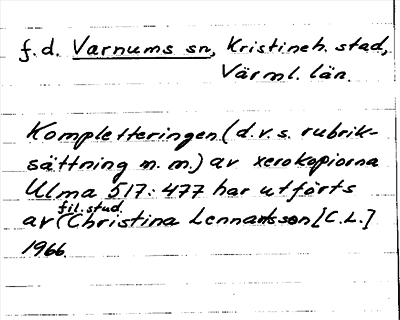 f.d. Varnums sn, Kristineh. stad,
Värml. län.
Kompletteringen (d.v.s. rubrik-
sättning m.m.) av xerokopiorna
Ulma 517:477 har utförts
av fil.stud. Christina Lennartsson [C.L.]
1966.